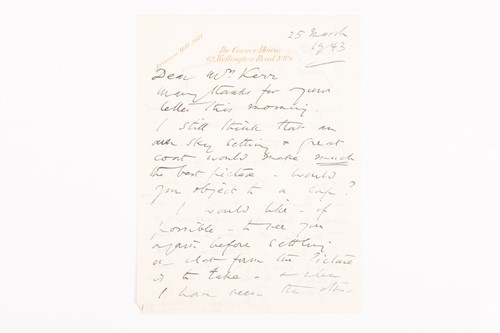 25 March
1943
Primrose Hill 5421
The Corner House,
62, Wellington Road, N.W.8.
Dear Mrs Kerr
Many thanks for your
letter this morning.
I still think that an
sky setting & great
coat would make much
the best picture - would
you object to a cap?
I would like - if
possible - to see you
again before settling
on what form the Picture
is to take - & when
I have seen the other